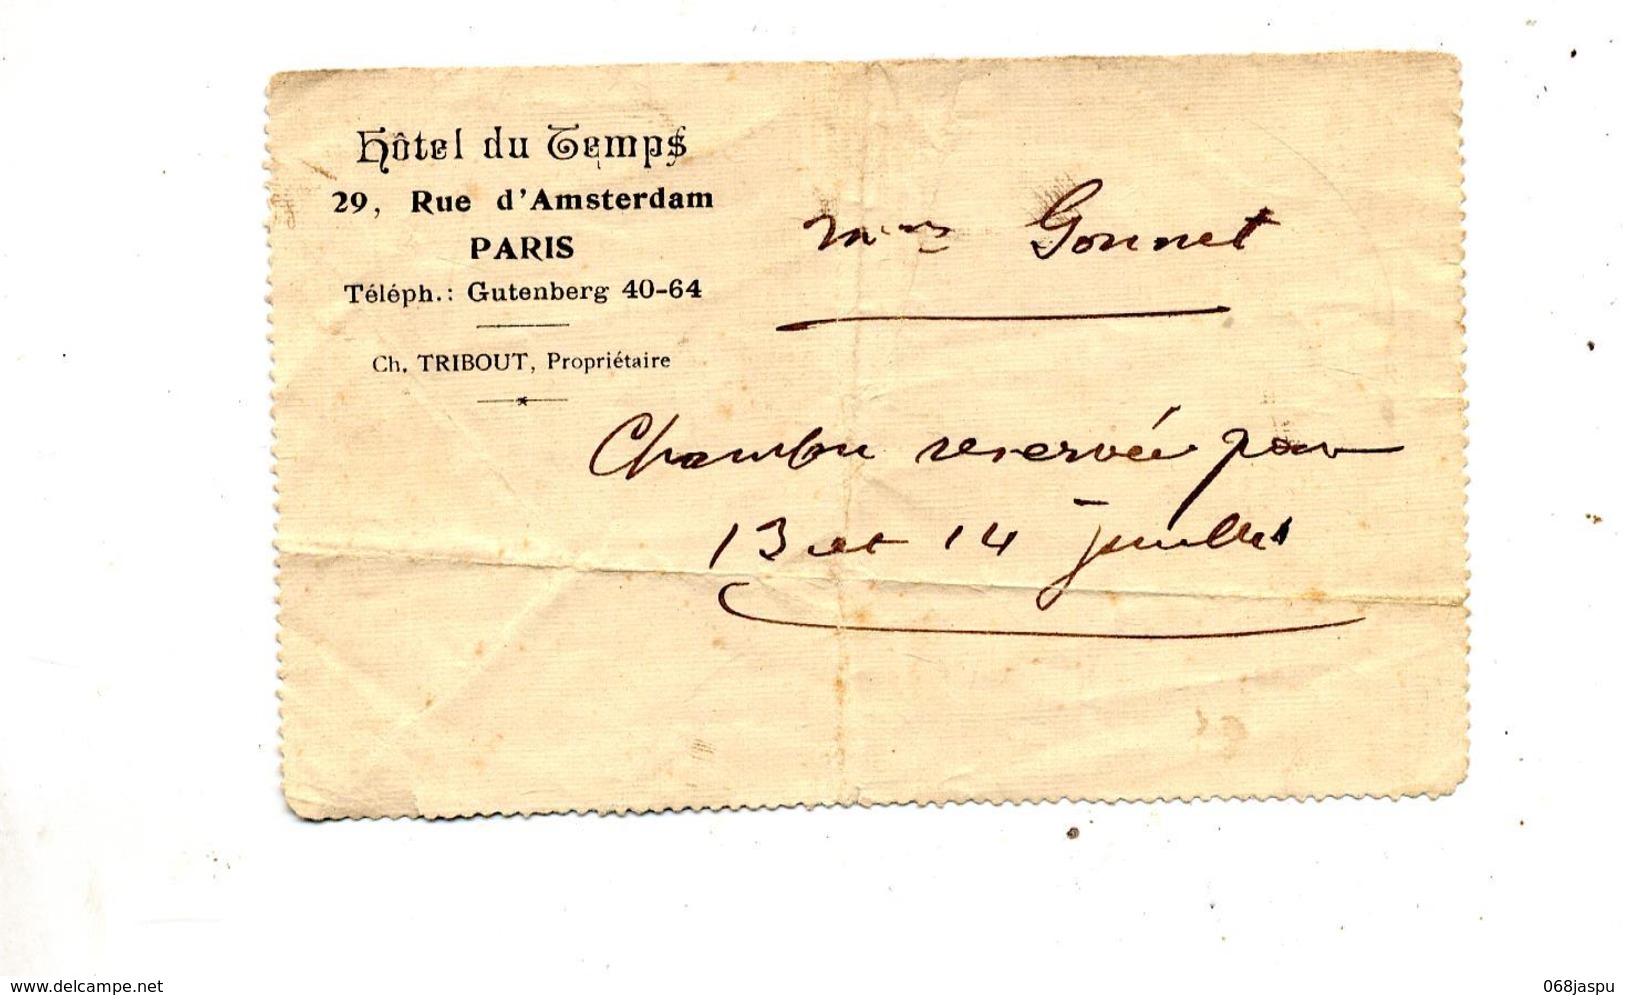 Hôtel du Temps
29, Rue d'Amsterdam
PARIS
Téléph.: Gutenberg 40-64
Ch. TRIBOUT, Propriétaire
Mme Gonnet
Chambre reservée pour
13 et 14 juillet
www.delcampe.net
068jaspu